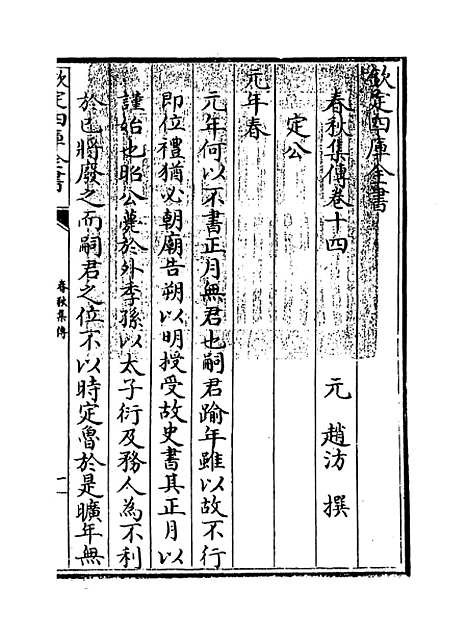 欽定四庫全書
春秋集傳卷十四
元 趙汸 撰
定公
元年春
元年何以不書正月無君也嗣君踰年雖以故不行
即位禮猶必朝廟告朔以明授受故史書其正月以
謹始也昭公薨於外季孫以太子衍及務人為不利
於已將廢之而嗣君之位不以時定魯於是曠年無
欽定四庫全書
春秋集傳
一